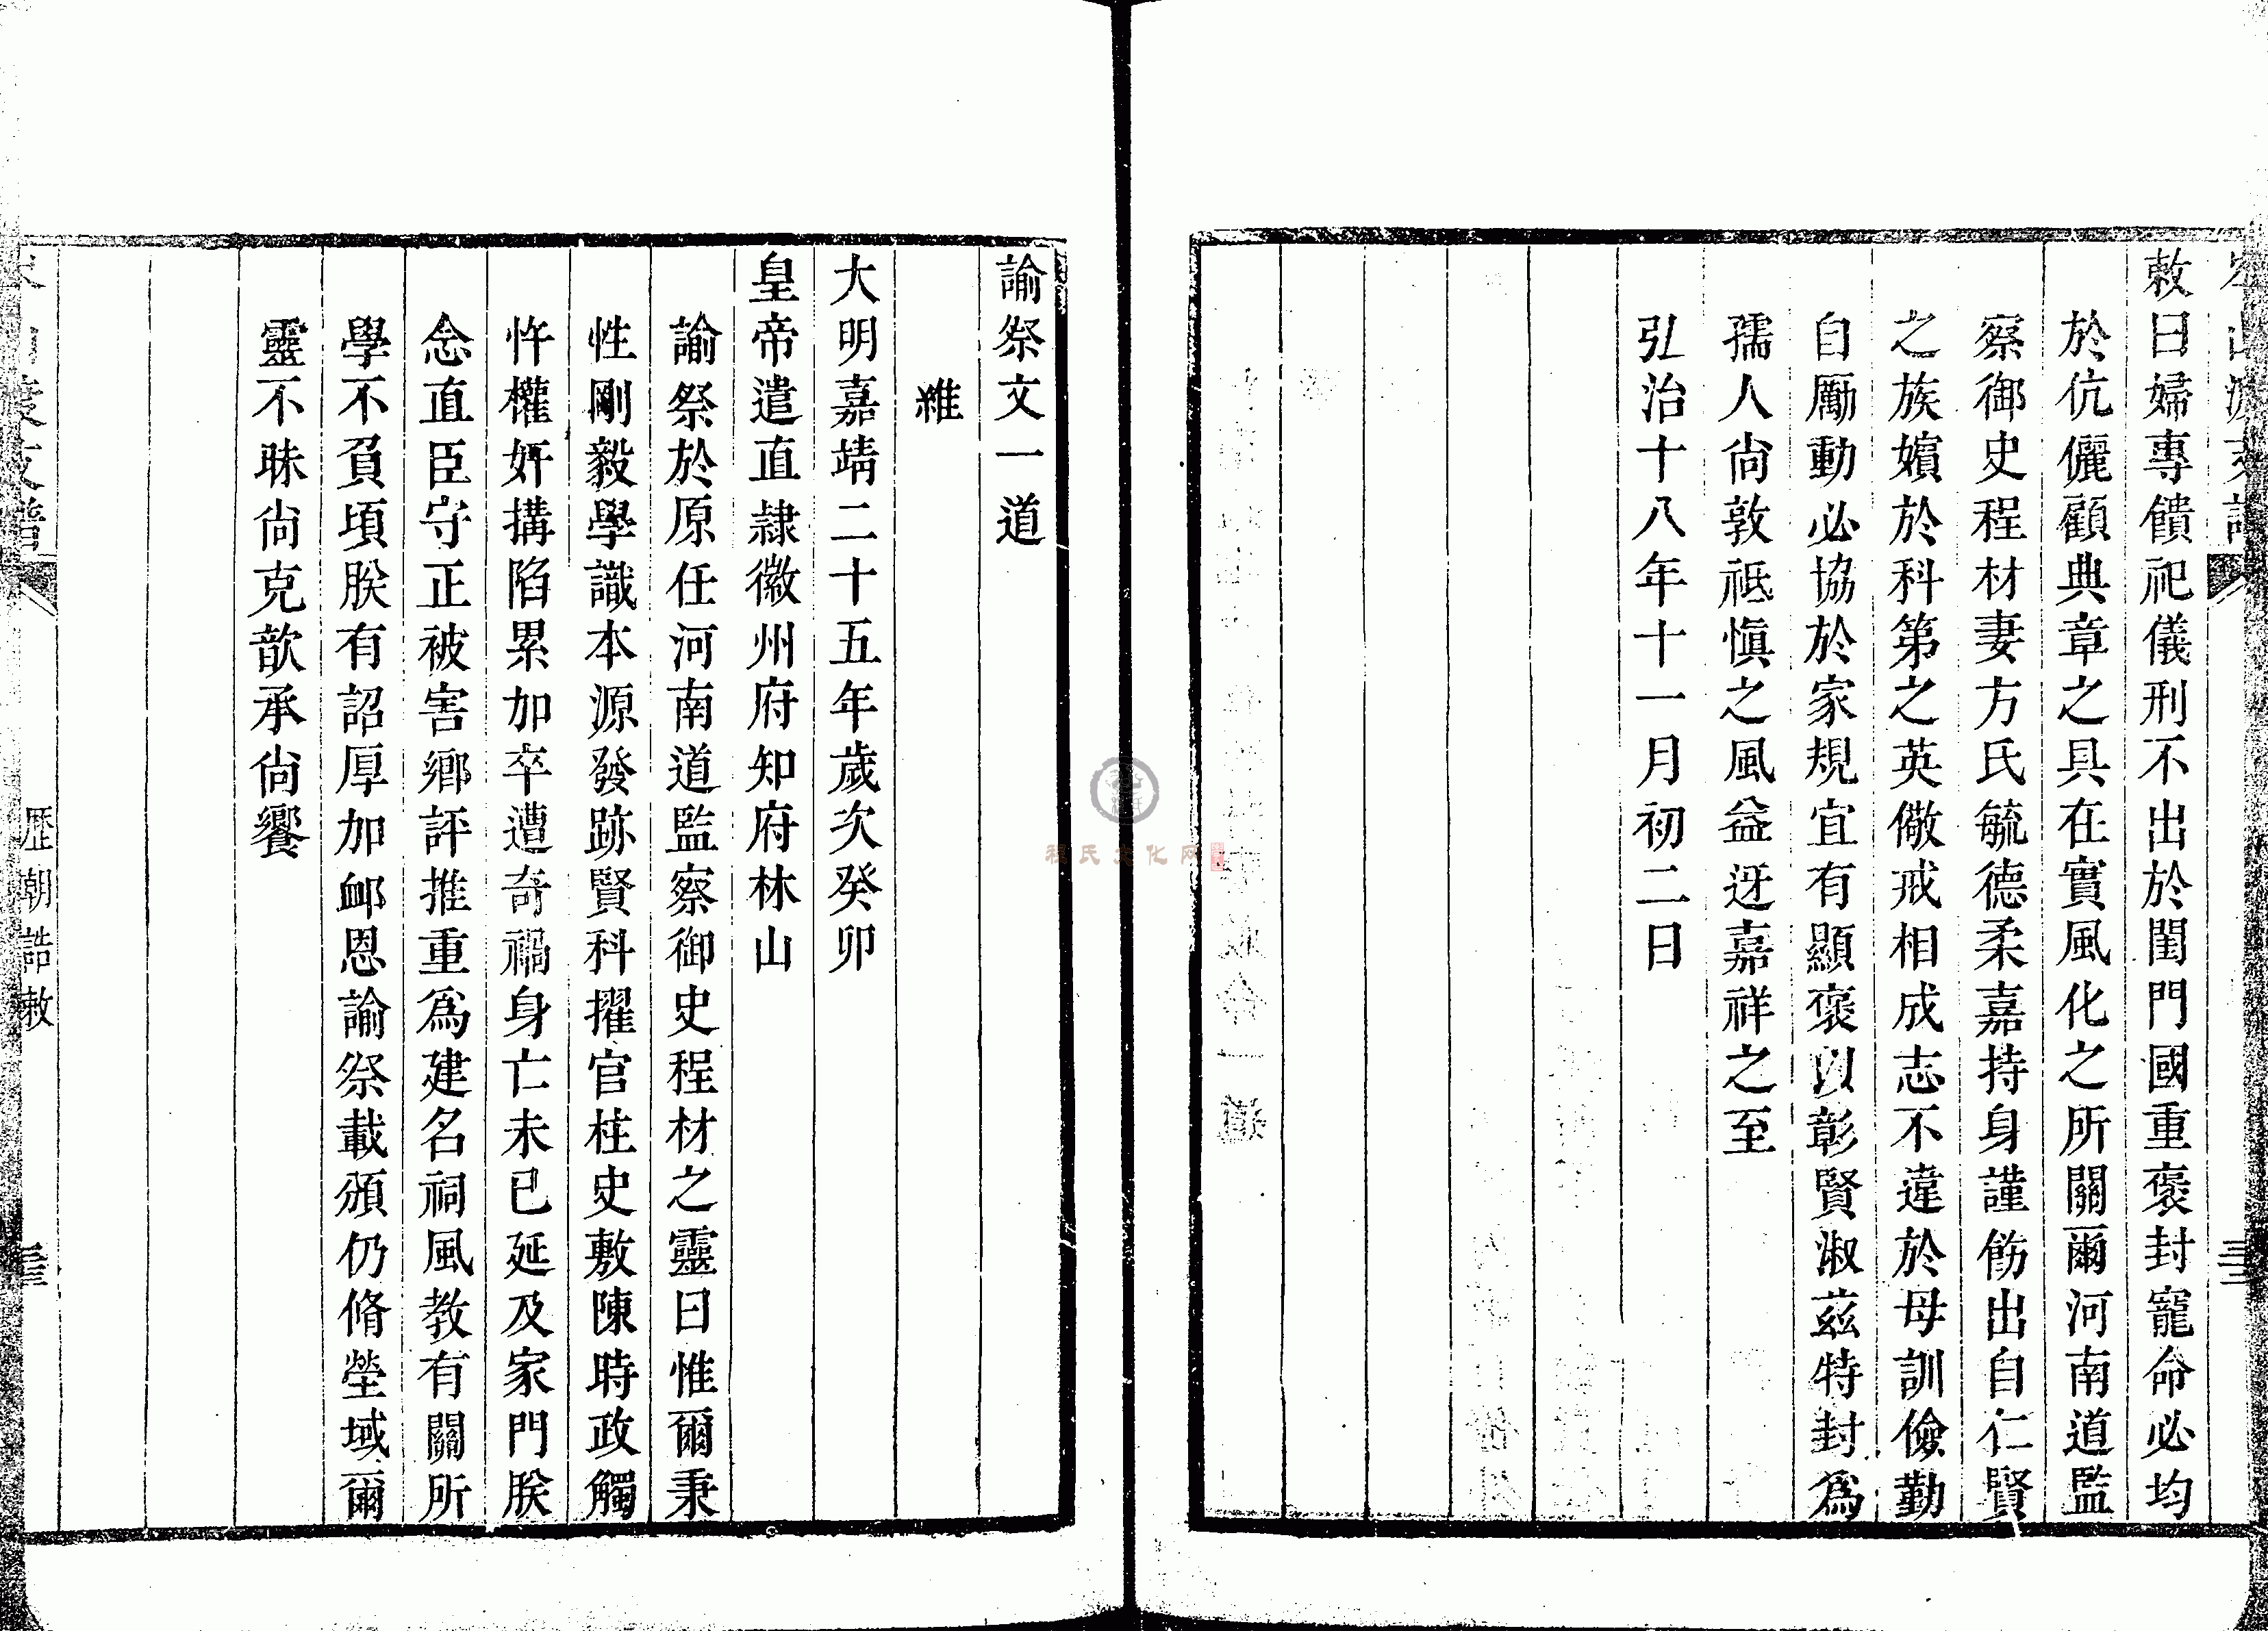 敕曰婦專饋祀儀刑不出於閨門國重褒封寵命必均
於伉儷顧典章之具在實風化之所關爾河南道監
察御史程材妻方氏毓德柔嘉持身謹飭出自仁賢
之族嬪於科第之英儆戒相成志不違於母訓儉勤
自勵動必協於家規宜有顯褒以彰賢淑茲特封為
孺人尚敦祗慎之風益迓嘉祥之至
弘治十八年十一月初二日
諭祭文一道
維
大明嘉靖二十五年歲次癸卯
皇帝遣直隷徽州府知府林山
諭祭於原任河南道監察御史程材之靈曰惟爾秉
性剛毅學識本源發跡賢科擢官柱史敷陳時政觸
忤權奸搆陷累加卒遭奇禍身亡未已延及家門朕
念直臣守正被害鄉評推重為建名祠風教有關所
學不負頃朕有詔厚加卹恩諭祭載頒仍脩塋域爾
靈不昧尚克歆承尚饗
歷朝誥敕
程氏文化网